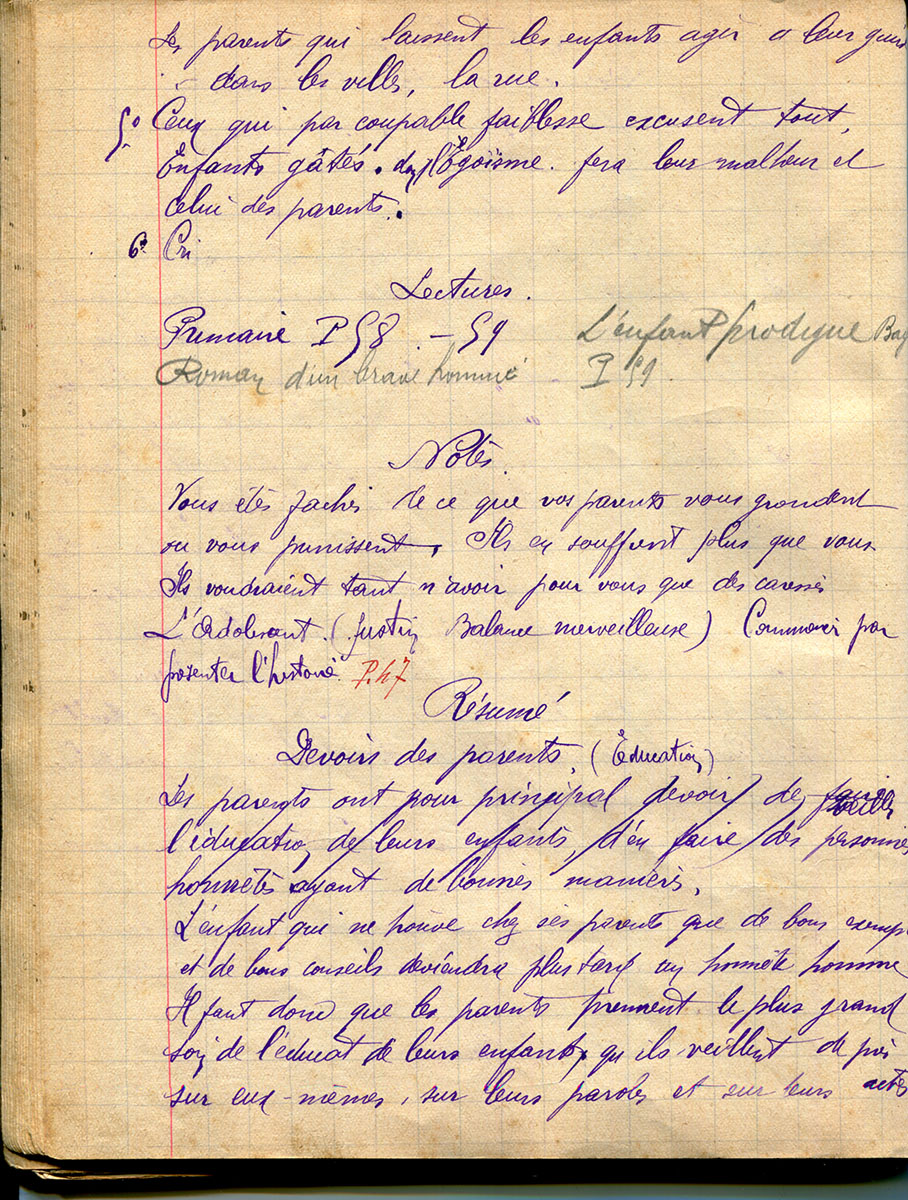 Les parents qui laissent les enfants agir a leur guise
dans les villes, la rue.
5° Ceux qui par coupable faiblesse excusent tout,
Enfants gâtés. l'Égoïsme. fera leur malheur et
celui des parents.
6° Cri
Lectures.
Primaire P 58. - 59 L'enfant prodigue
Roman d'un brave homme P 59.
Notes.
Vous êtes fachés de ce que vos parents vous grondent
ou vous punissent, Ils en souffrent plus que vous
Ils voudraient tant n'avoir pour vous que des caresses
L'Adolescent. (Justin Balance merveilleuse) Commencer par
présenter l'histoire P. 47
Résumé
Devoirs des parents. (Education)
Les parents ont pour principal devoir de veiller
l'éducation de leurs enfants, d'en faire des personnes
honnêtes ayant de bonnes manières.
L'enfant qui ne trouve chez ses parents que de bons exemp
et de bons conseils deviendra plus tard un honnête homme
Il faut donc que les parents prennent le plus grand
soin de l'éducat de leurs enfants, qu'ils veillent de près
sur eux-mêmes, sur leurs paroles et sur leurs actes